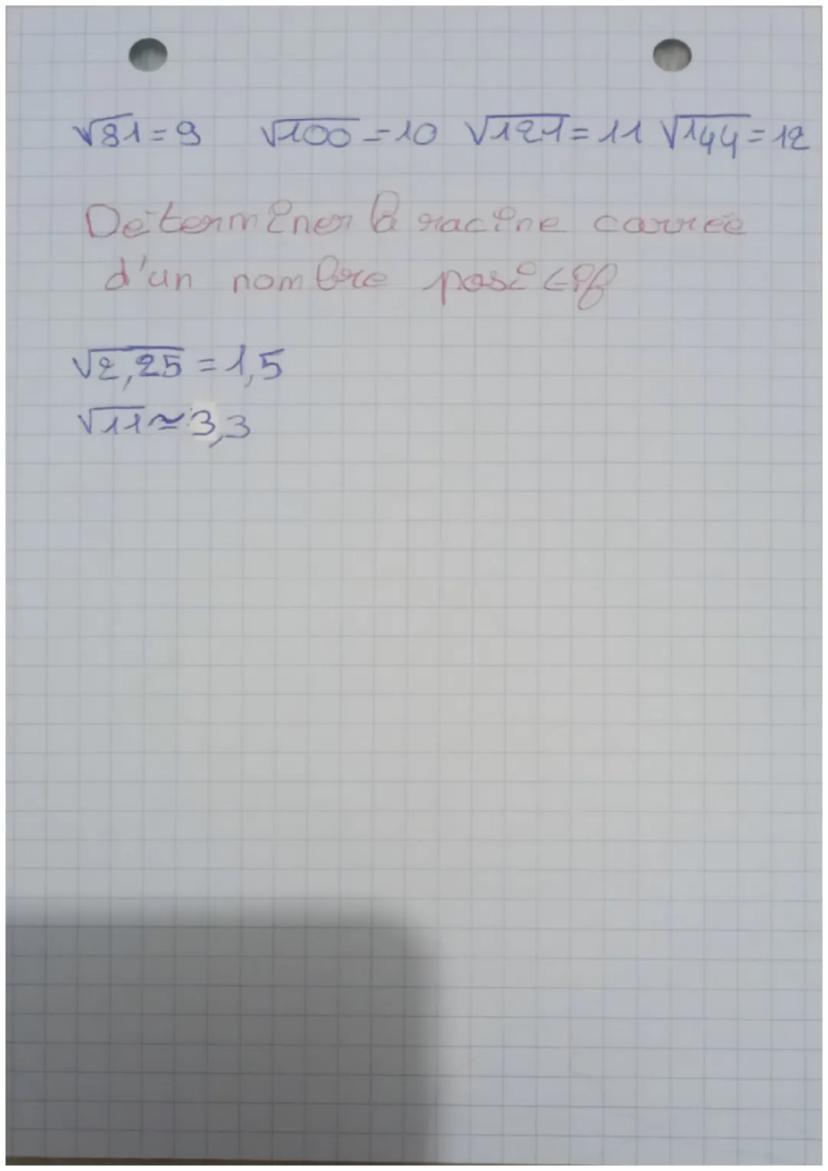 √81 = 9 √100 = 10 √121 = 11 √144 = 12
Déterminer la racine carrée
d'un nombre positif
√2,25 = 1,5
√11 ≃ 3,3